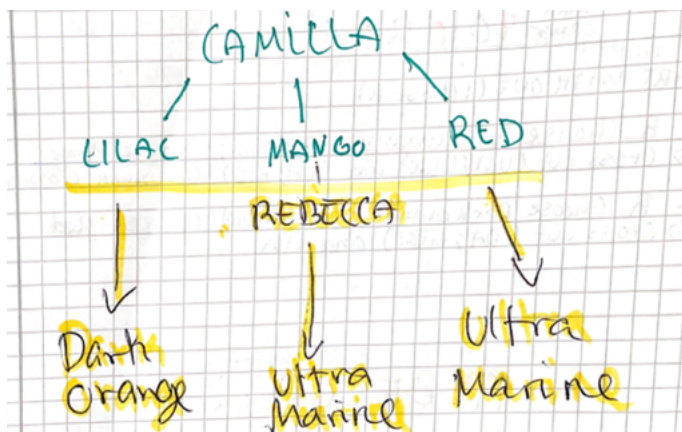 CAMILLA
LILAC MANGO RED
REBECCA
Dark
Orange
Ultra
Marine
Ultra
Marine